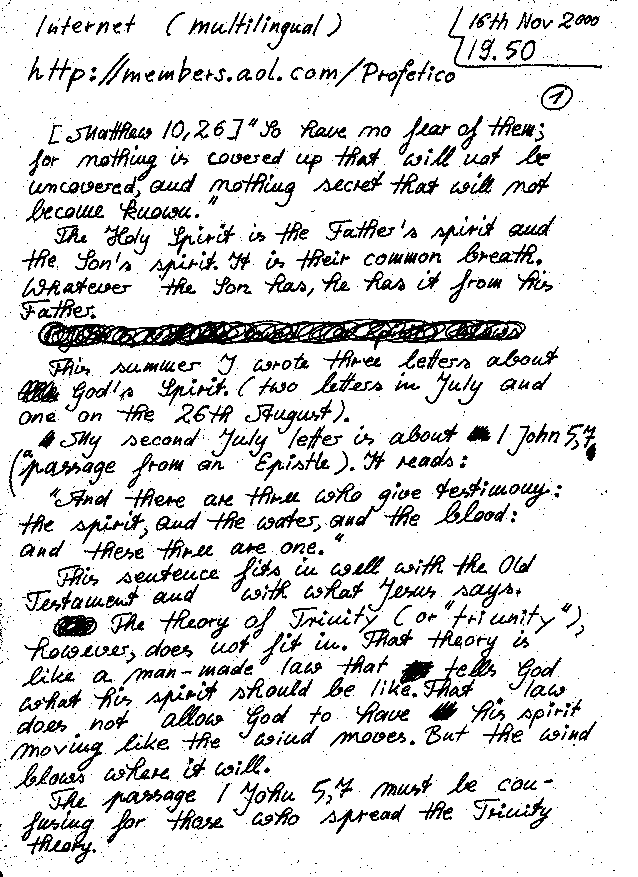 Internet (multilingual)
16th Nov 2000
19.50
http://members.aol.com/Profetico
1
[Matthew 10,26] "So have no fear of them;
for nothing is covered up that will not be
uncovered, and nothing secret that will not
become known."
The Holy Spirit is the Father's spirit and
the Son's spirit. It is their common breath.
Whatever the Son has, he has it from his
Father.
This summer I wrote three letters about
God's Spirit. (two letters in July and
one on the 26th August).
My second July letter is about 1 John 5,7
(a passage from an Epistle). It reads:
"And there are three who give testimony:
the spirit, and the water, and the blood:
and these three are one."
This sentence fits in well with the Old
Testament and with what Jesus says.
The theory of Trinity (or "triunity"),
however, does not fit in. That theory is
like a man-made law that tells God
what his spirit should be like. That law
does not allow God to have his spirit
moving like the wind moves. But the wind
blows where it will.
The passage 1 John 5,7 must be con-
fusing for those who spread the Trinity
theory.